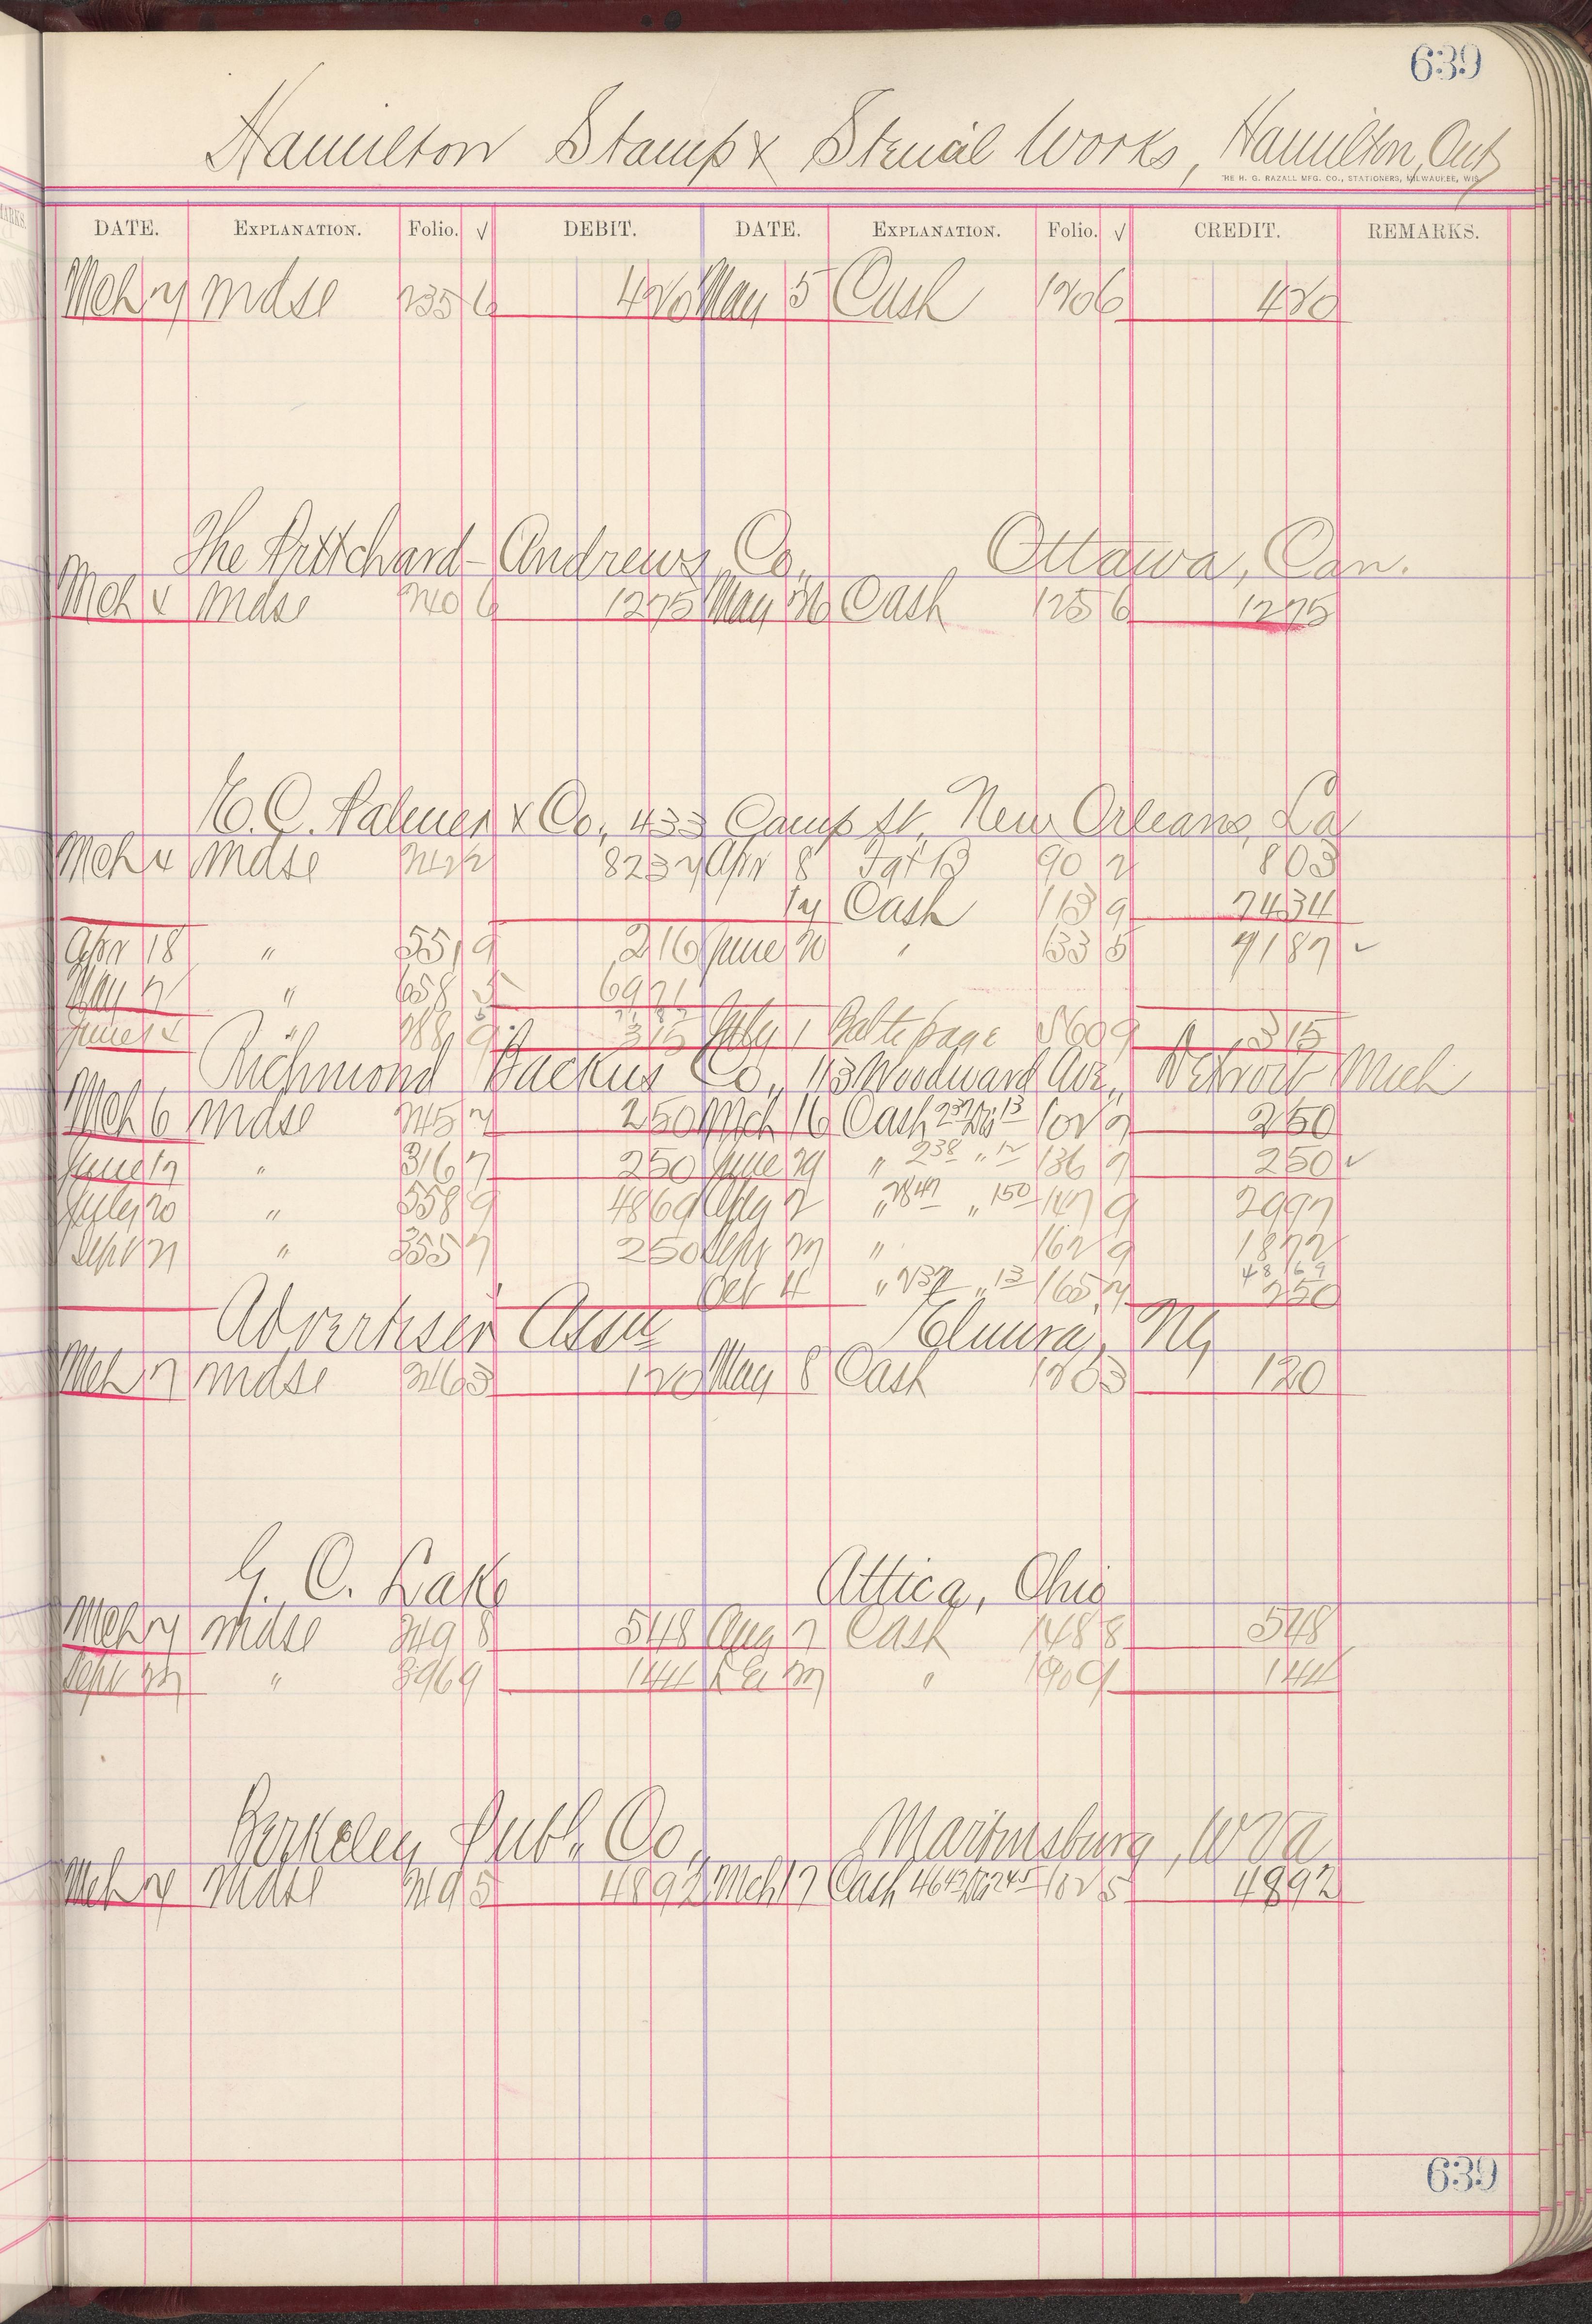 639
Hamilton Stamp & Stencil Works, Hamilton, Ont
THE H. G. RAZALL MFG. CO., STATIONERS, MILWAUKEE, WIS.
DATE. EXPLANATION. Folio. √ DEBIT. DATE. EXPLANATION. Folio. √ CREDIT. REMARKS.
Mch mdse 235 6 420 May 5 Cash 120 6 420
The Pritchard-Andrews Co. Ottawa, Can.
Mch mdse 240 6 1275 May 26 Cash 125 6 1275
E. C. Palmer & Co., 433 Camp St. New Orleans, La
Mch 4 mdse 242 2 8237 Apr 8 Fgt B 90 2 803
Cash 113 9 7434
Apr 18 " 551 9 216 June 20 " 133 5 7187 ✓
May " 658 6971
June " 788 9 315 July 1 Balto page 9 315
Richmond Backus Co., 113 Woodward Ave., Detroit Mich
Mch 6 mdse 245 7 250 Mch 16 Cash 237 13 102 7 250
June 17 " 316 7 250 June 29 " 238 " 12 136 7 250 ✓
July 20 " 558 9 4869 " 2847 " 150 147 9 2997
Sept 21 " 355 7 250 Sept " 162 9 1872
4869
Oct 4 " 237 " 13 165 7 250
Advertiser Assn Elmira, NY
Mch 7 mdse 246 3 120 May 8 Cash 120 3 120
G. C. Lake Attica, Ohio
Mch mdse 249 8 548 Aug 7 Cash 148 8 548
Sept " 396 9 144 " 190 9 144
Berkeley Publ. Co., Martinsburg, W Va
Mch mdse 249 5 4892 Mch 17 Cash 4647 245 102 5 4892
639